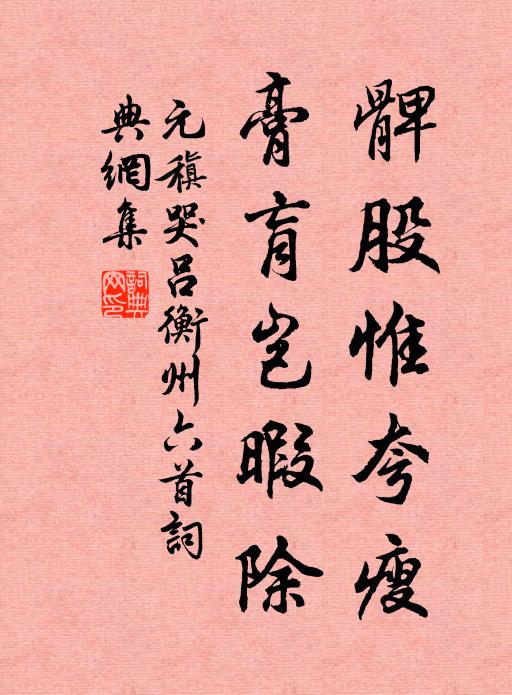 髀股惟夸瘦
膏肓岂暇除
元稹哭吕衡州六首詞
典網集
詞典
网印